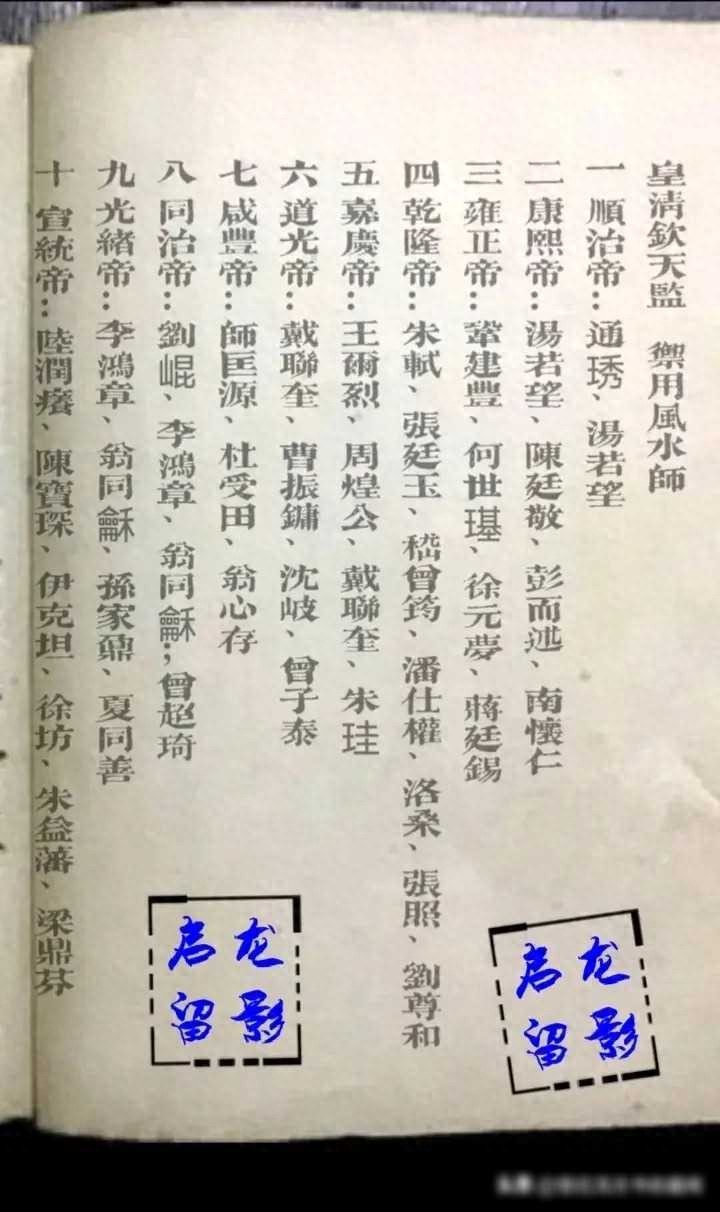 皇清欽天監　禦用風水師
一 順治帝：通琇、湯若望
二 康熙帝：湯若望、陳廷敬、彭而述、南懷仁
三 雍正帝：鞏建豐、何世璂、徐元夢、蔣廷錫
四 乾隆帝：朱軾、張廷玉、嵇曾筠、潘仕權、洛桑、張照、劉尊和
五 嘉慶帝：王爾烈、周煌公、戴聯奎、朱珪
六 道光帝：戴聯奎、曹振鏞、沈岐、曾子泰
七 咸豐帝：師匡源、杜受田、翁心存
八 同治帝：劉崐、李鴻章、翁同龢；曾趝琦
九 光緒帝：李鴻章、翁同龢、孫家鼐、夏同善
十 宣統帝：陸潤癢、陳寶琛、伊克坦、徐坊、朱益藩、梁鼎芬
启龙
留影
启龙
留影